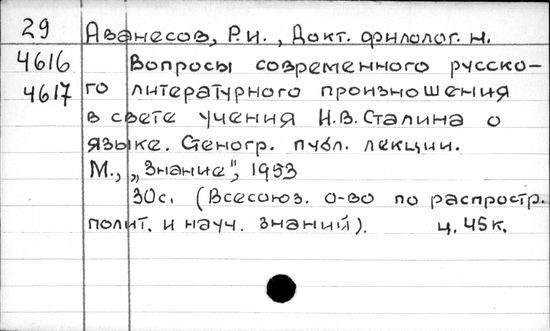 29 Аванесов, Р.И., Докт. филолог. н.
4616 Вопросы современного русско-
4617 го литературного произношения
в свете учения И.В. Сталина о
языке. Стеногр. публ. лекции.
М., „Знание", 1953
30с. (Всесоюз. о-во по распростр.
полит. и науч. знаний). ц. 45к.